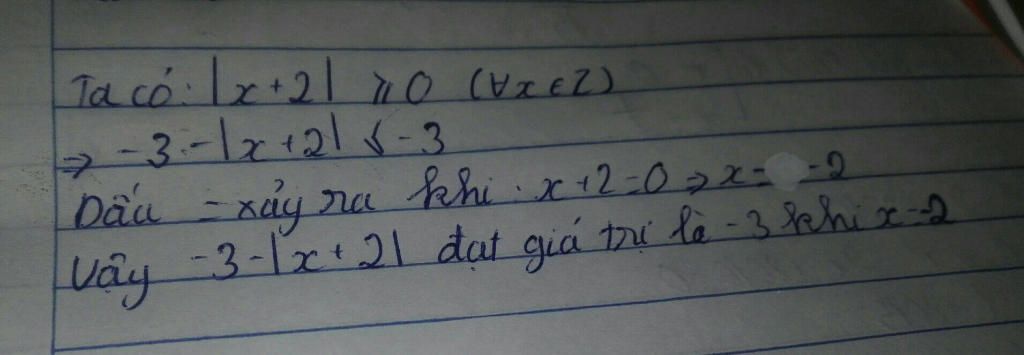 Ta có: |x+2| ⩾ 0 (∀x ∈ Z)
=> -3-|x+2| ≤ -3
Dấu = xảy ra khi: x+2=0 => x= -2
Vậy -3-|x+2| đạt giá trị là -3 khi x=-2